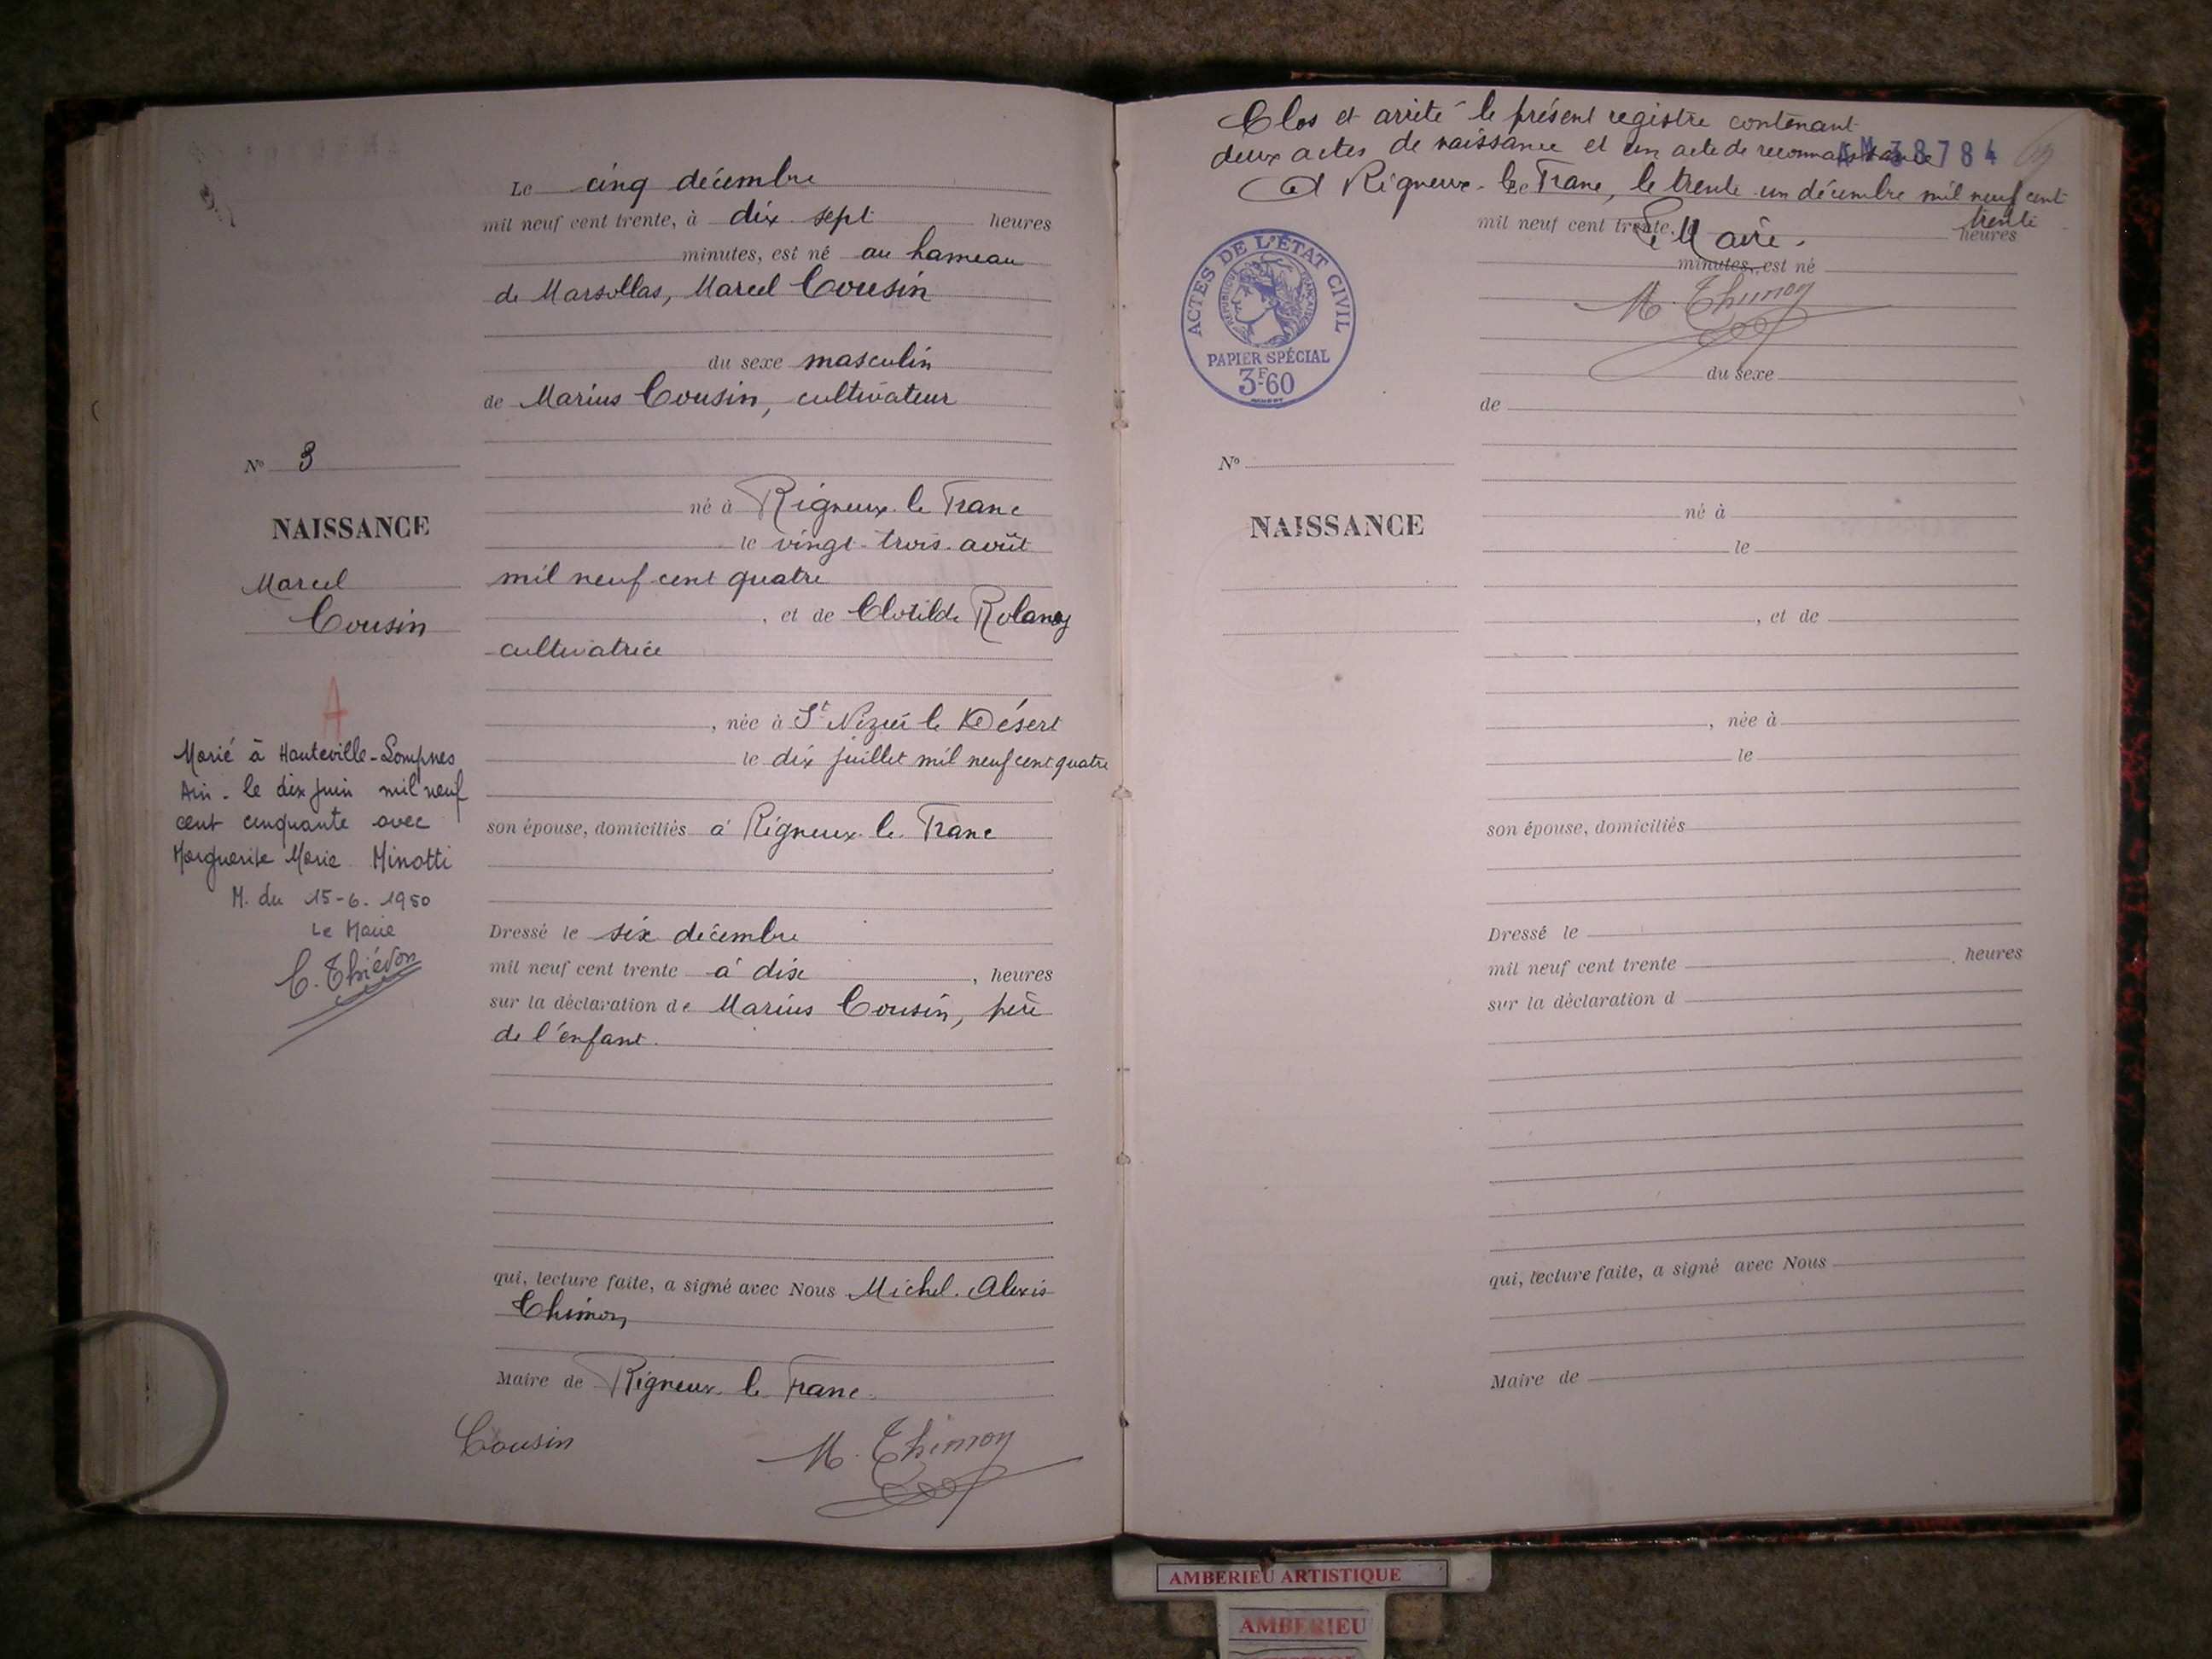 Le cinq décembre
mil neuf cent trente, à dix sept heures
minutes, est né au hameau
de Marsollas, Marcel Cousin
du sexe masculin
de Marius Cousin, cultivateur
né à Rigneux le Franc
le vingt-trois août
mil neuf cent quatre
, et de Clotilde
cultivatrice
, née à St Nizier le Désert
le dix juillet mil neuf cent quatre
son épouse, domiciliés à Rigneux le Franc
Dressé le six décembre
mil neuf cent trente à dix , heures
sur la déclaration de Marius Cousin, père
de l'enfant.
qui, lecture faite, a signé avec Nous Michel Alexis
Thimon
Maire de Rigneux le Franc
Cousin M. Thimon
N° 3
NAISSANCE
Marcel
Cousin
A
Marié à Hauteville-Lompnes
Ain - le dix juin mil neuf
cent cinquante avec
Marguerite Marie Minotti
M. du 15-6. 1950
Le Maire
Clos et arrêté le présent registre contenant
deux actes de naissance et un acte de reconnaissance
AM 38784
A Rigneux-le Franc, le trente un décembre mil neuf cent
trente
Le Maire.
M. Thimon
ACTES DE L'ÉTAT CIVIL
RÉPUBLIQUE FRANÇAISE
PAPIER SPÉCIAL
3F60
mil neuf cent trente, heures
minutes, est né
du sexe
de
N°
NAISSANCE
né à
le
, et de
, née à
le
son épouse, domiciliés
Dressé le
mil neuf cent trente , heures
sur la déclaration d
qui, lecture faite, a signé avec Nous
Maire de
AMBERIEU ARTISTIQUE
AMBERIEU